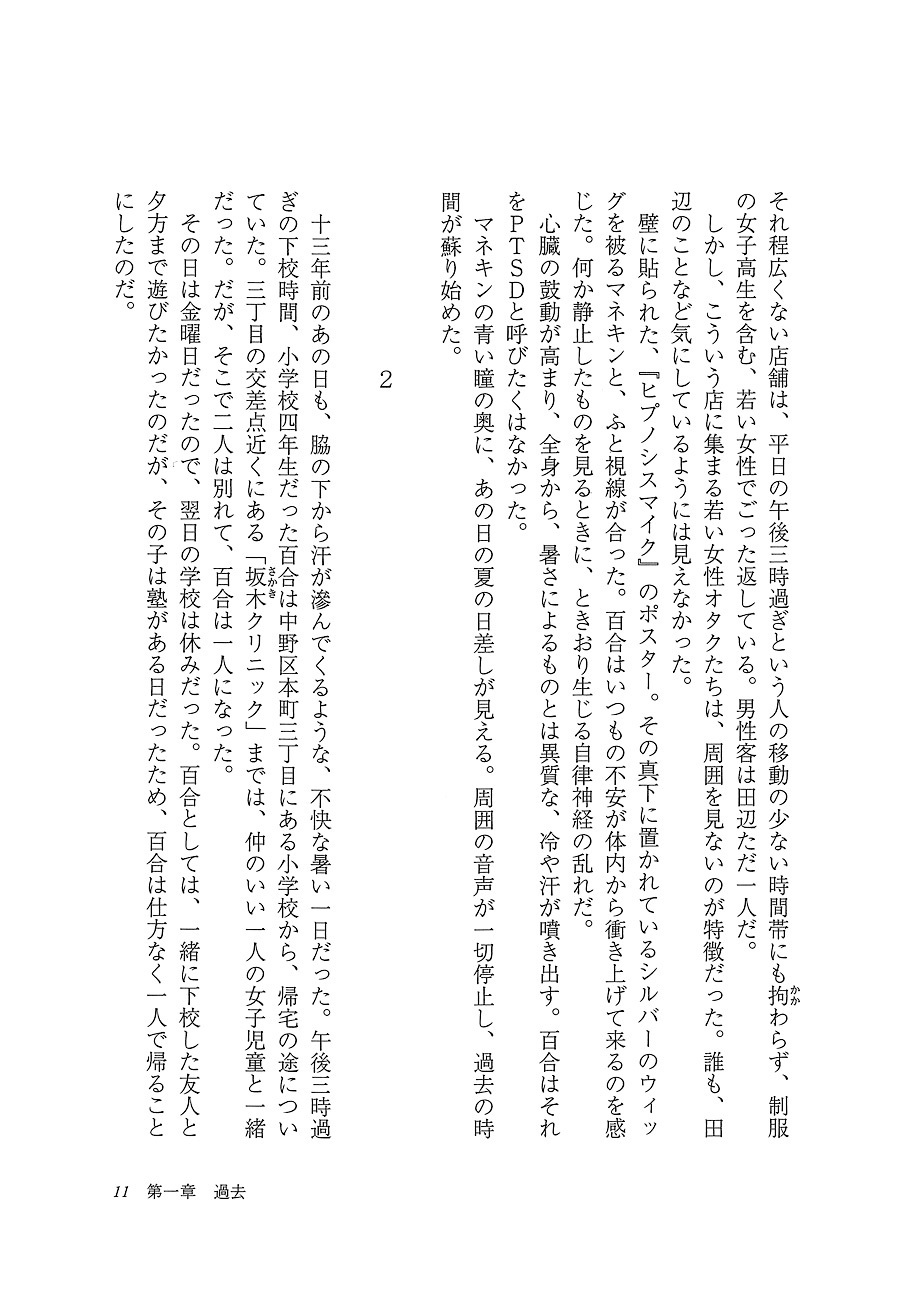 それ程広くない店舗は、平日の午後三時過ぎという人の移動の少ない時間帯にも拘わらず、制服
の女子高生を含む、若い女性でごった返している。男性客は田辺ただ一人だ。
しかし、こういう店に集まる若い女性オタクたちは、周囲を見ないのが特徴だった。誰も、田
辺のことなど気にしているようには見えなかった。
壁に貼られた、『ヒプノシスマイク』のポスター。その真下に置かれているシルバーのウィッ
グを被るマネキンと、ふと視線が合った。百合はいつもの不安が体内から衝き上げて来るのを感
じた。何か静止したものを見るときに、ときおり生じる自律神経の乱れだ。
心臓の鼓動が高まり、全身から、暑さによるものとは異質な、冷や汗が噴き出す。百合はそれ
をPTSDと呼びたくはなかった。
マネキンの青い瞳の奥に、あの日の夏の日差しが見える。周囲の音声が一切停止し、過去の時
間が蘇り始めた。
2
十三年前のあの日も、脇の下から汗が滲んでくるような、不快な暑い一日だった。午後三時過
ぎの下校時間、小学校四年生だった百合は中野区本町三丁目にある小学校から、帰宅の途につい
ていた。三丁目の交差点近くにある「坂木クリニック」までは、仲のいい一人の女子児童と一緒
だった。だが、そこで二人は別れて、百合は一人になった。
その日は金曜日だったので、翌日の学校は休みだった。百合としては、一緒に下校した友人と
夕方まで遊びたかったのだが、その子は塾がある日だったため、百合は仕方なく一人で帰ること
にしたのだ。
かか
さかき
11 第一章 過去